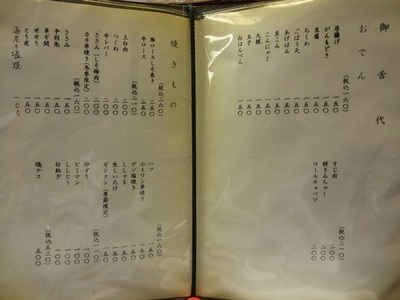 御舌代
おでん
厚揚げ
がんもどき
豆腐
ちくわ
ごぼう天
あげはん
生こん
こんにゃく
大根
玉子
白はんぺん
(税込一六〇)
一五〇
一五〇
一五〇
一五〇
一五〇
一五〇
一五〇
一五〇
一五〇
一五〇
すじ肉
餅きんちゃく
ロールキャベツ
(税込二一〇)
二〇〇
二〇〇
焼きもの
豚ロースしそ巻き
牛ロース
(税込二六〇)
二五〇
上白肉
つくね
牛レバー
カキ串焼き(冬季限定)
ささみ(しそ梅肉)
(税込二一〇)
二〇〇
二〇〇
二〇〇
二〇〇
ささみ
手羽先
串ギ間
せせり
とり皮
(税込一六〇)
一五〇
一五〇
一五〇
一五〇
ハツ
小イワシ串焼き
ゲソ塩焼き
ししゃも
生しいたけ
ギンナン(季節限定)
(税込一六〇)
一五〇
一五〇
一五〇
一五〇
一五〇
砂ずり
ピーマン
ししとう
白ねぎ
(税込一一〇)
一〇〇
一〇〇
一〇〇
焼ナス
(税込五三〇)
五〇〇